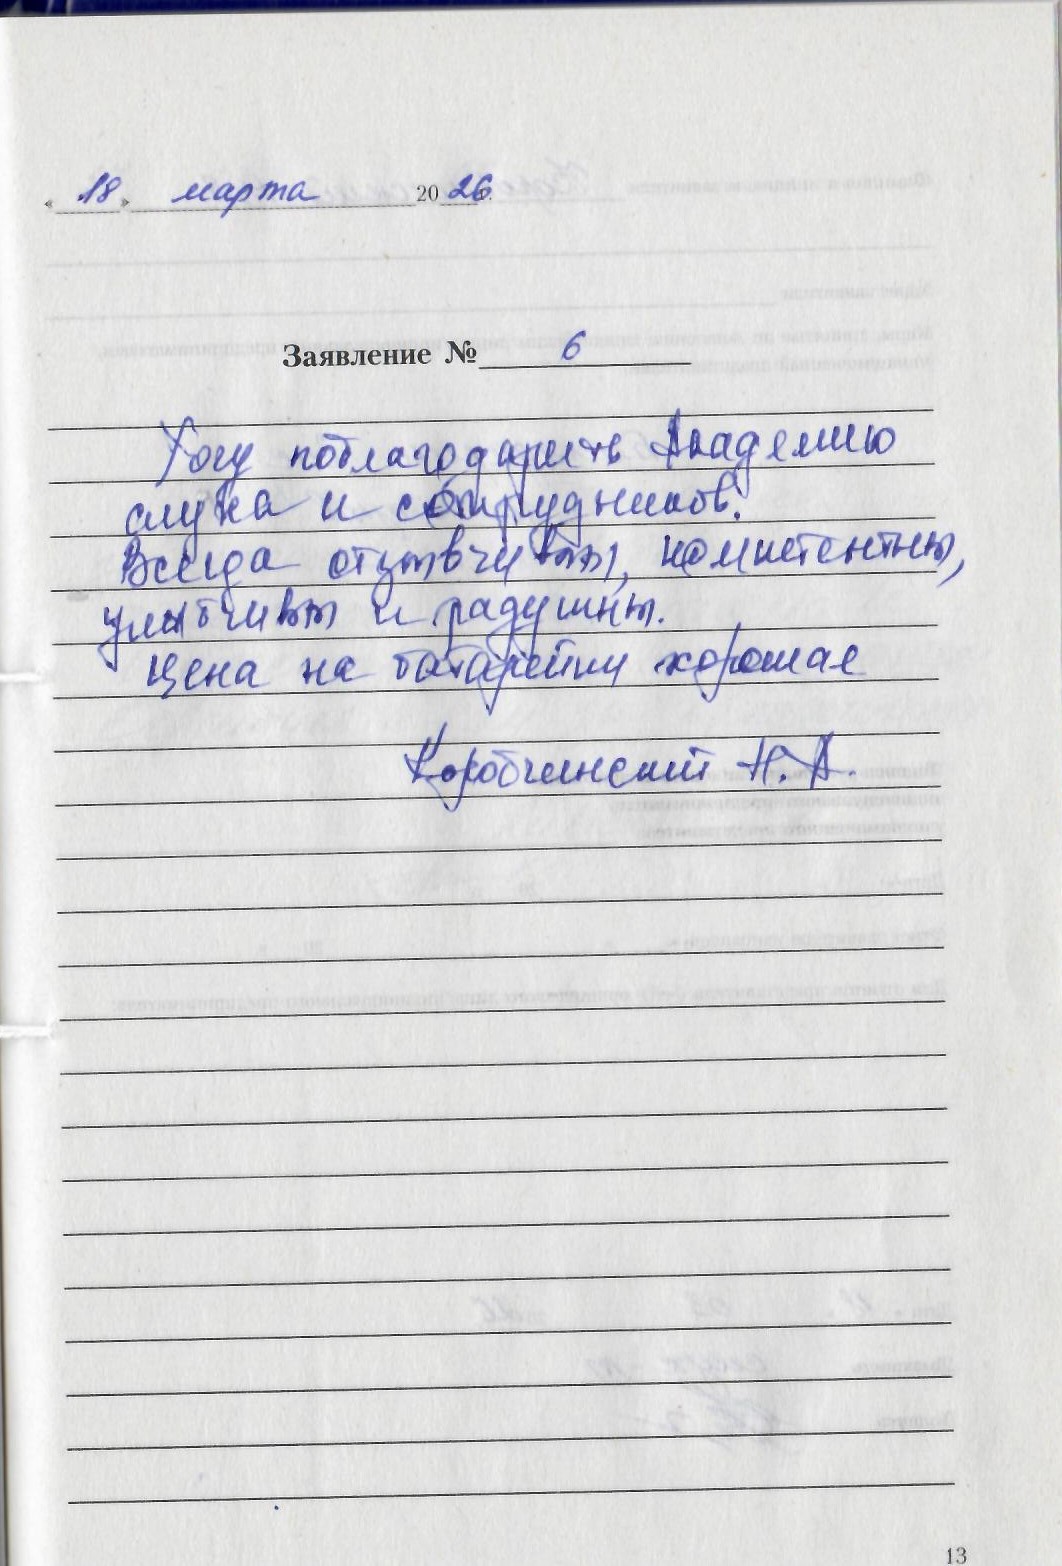 « 18 » марта 2026
Заявление № 6
Хочу поблагодарить Академию
слуха и сотрудников.
Всегда отзывчивы, компетентны,
улыбчивы и радушны.
Цена на батарейки хорошая
Коробчинский Н. А.
13